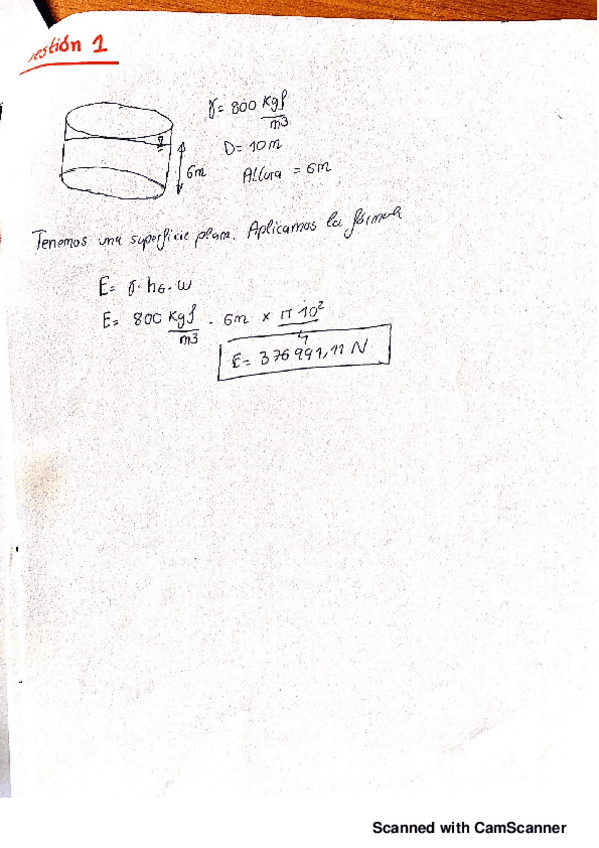 estión 1
γ = 800 Kgf/m3
D = 10m
6m
Altura = 6m
Tenemos una superficie plana. Aplicamos la fórmula
E = γ · hG · ω
E = 800 Kgf/m3 · 6m × π 10²/4
E = 376991,11 N
Scanned with CamScanner